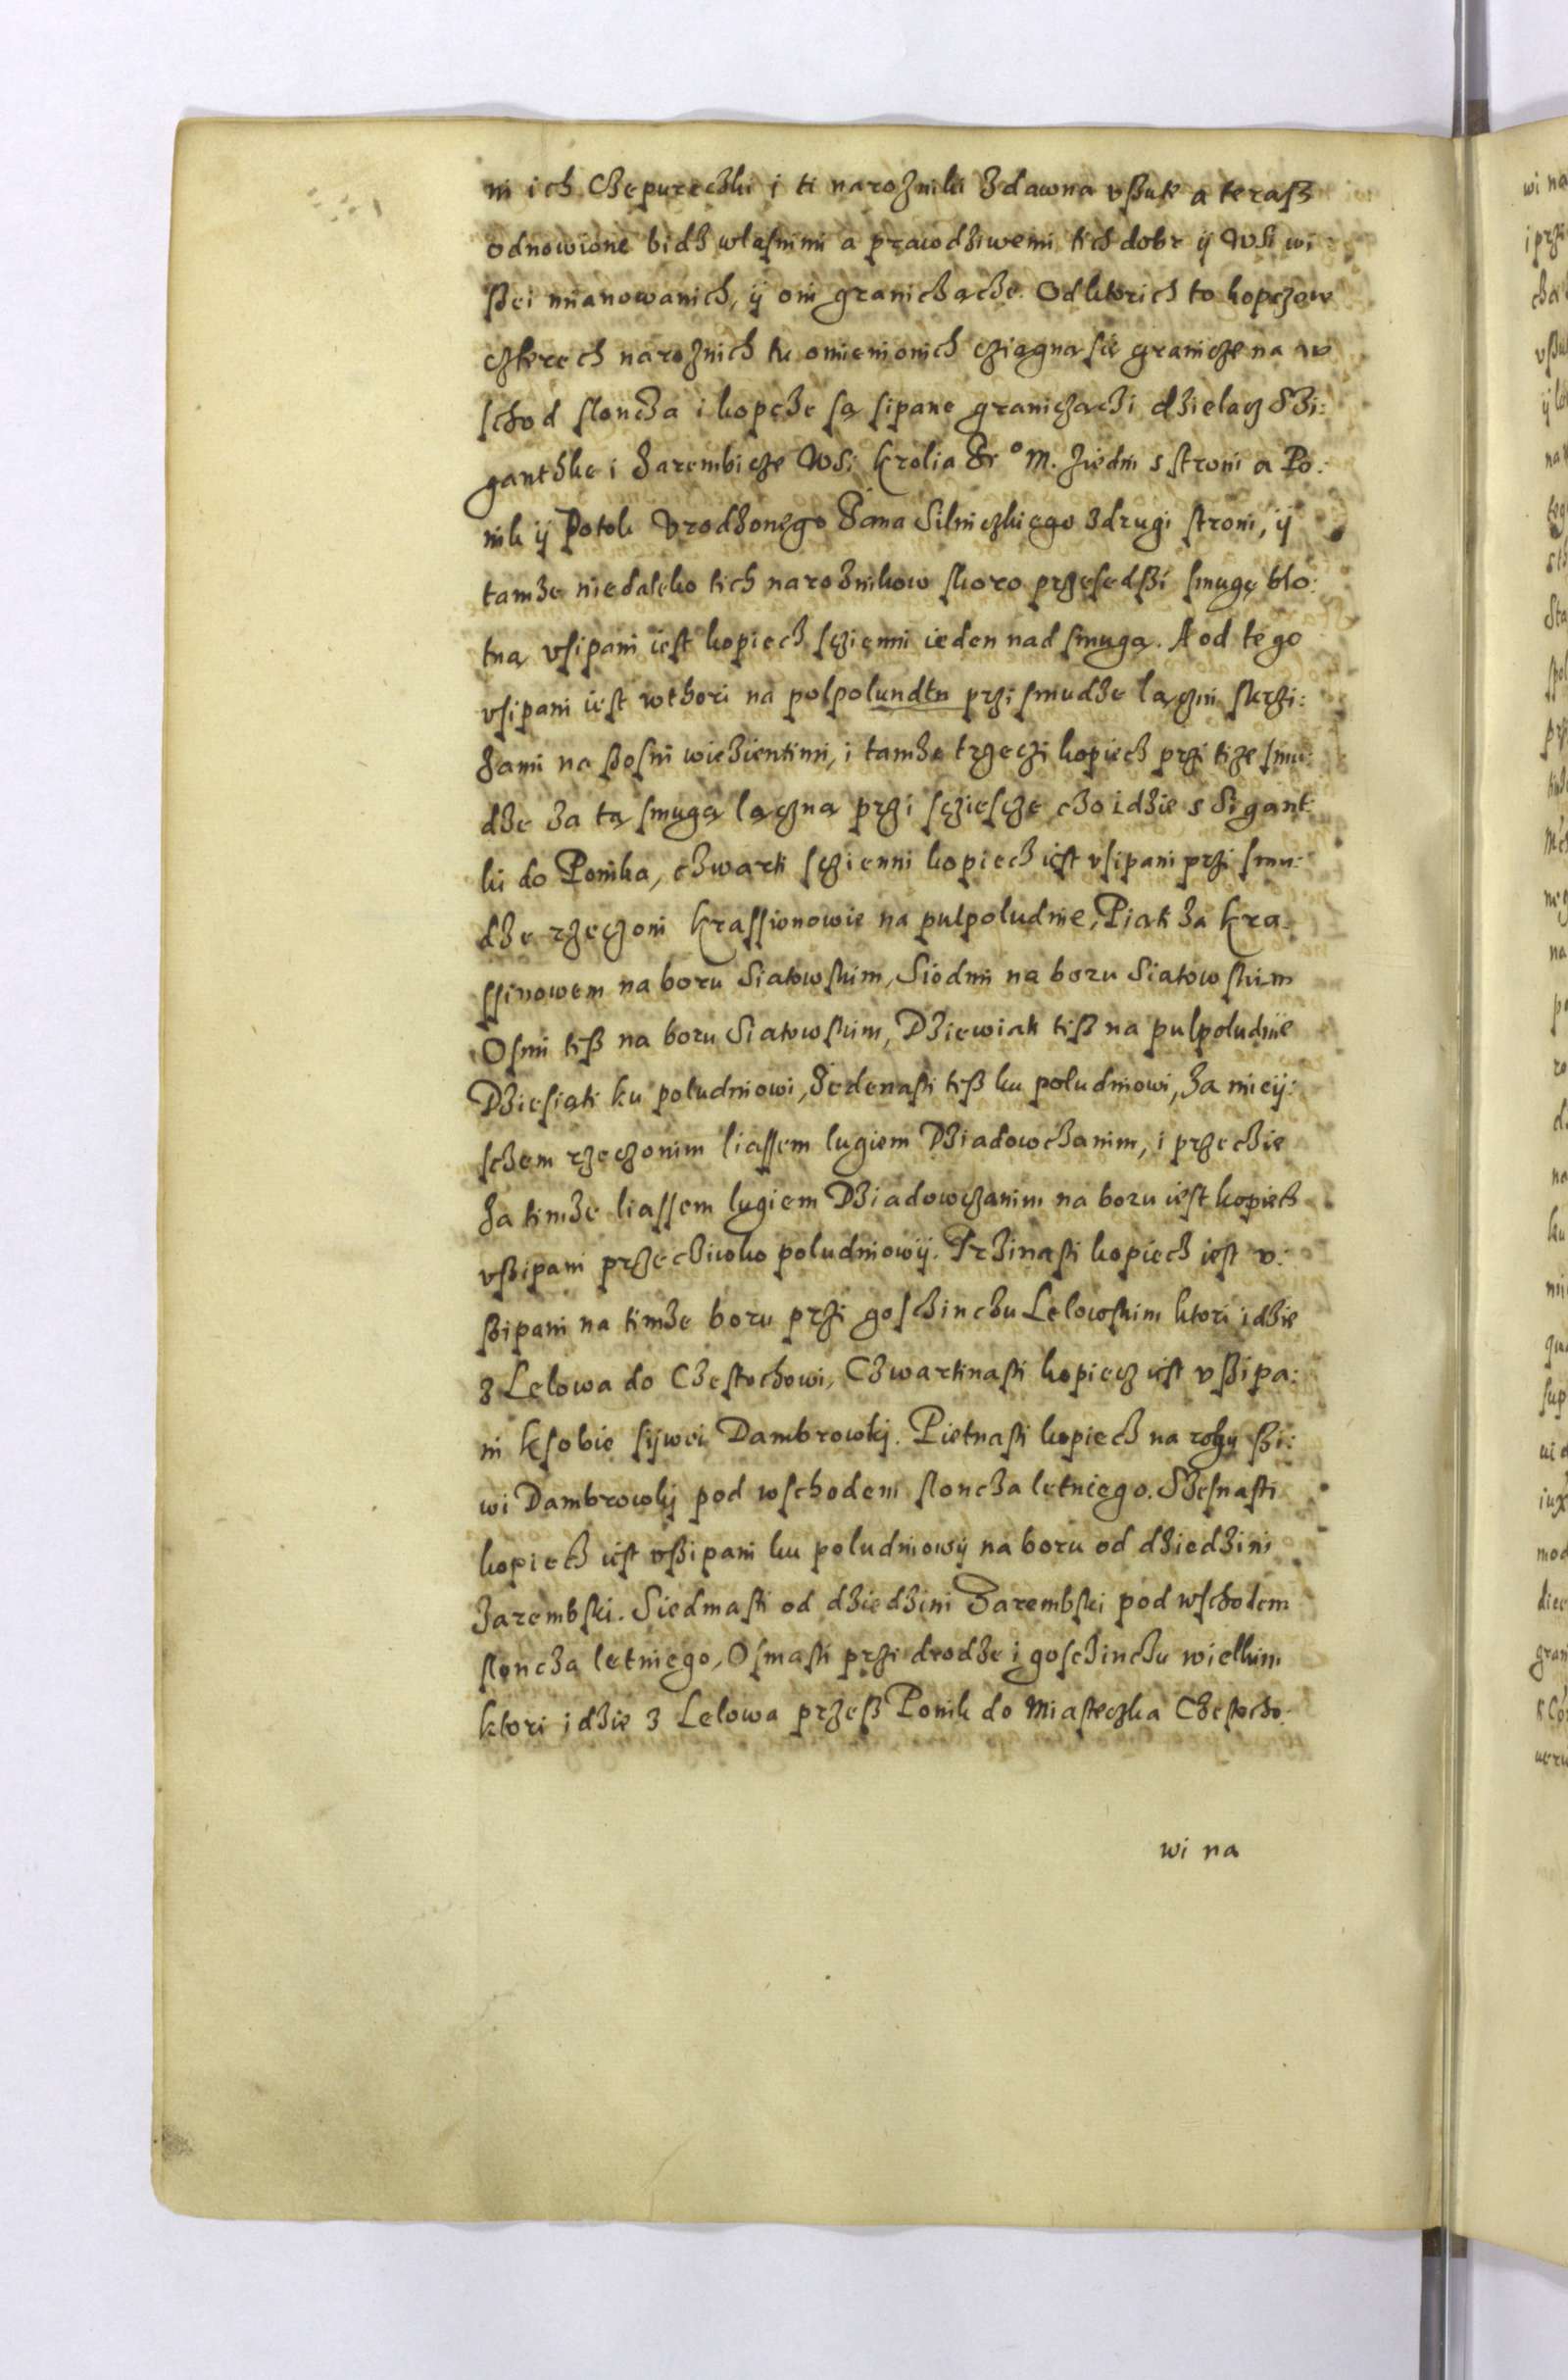 ni ich Czepureczki i ti narozniki zdawna vßute a teraß
odnowione bidz własnimi a prawdziwemi tich dobr ÿ Wsi wi:
ßei mianowanich, ÿ oni graniczącze. Od ktorich to kopczow
czterech naroznich tu omienionich cziągna się granicze na w
schod słoncza i kopcze są sipane graniczączi dzieląc Zi:
gantzke i Zarembicze Wsi Krolia Jr° M. Jiedni s stroni a Po:
nik ÿ Potok Vrodzonego Pana Silniczkiego z drugi stroni, ÿ
tamze niedaleko tich naroznikow skoro przesedßi smugę bło:
tną vsipani iest kopiecz sczienni ieden nad smugą. A od tego
vsipani iest wthori na polpolundtn przi smudze łączni skrzi:
zami na ßosni wicziętimi, i tamze trzeczi kopiecz przi tize smu:
dze za tą smugą łączną przi scziescze czo idzie s Sigant
ki do Ponika, czwarti sczienni kopiecz iest vsipani przi smu:
dze rzeczoni Krassionowie na pulpoludnie, Piąti za Kra
ssinowem na boru Siatowskim, Siodmi na boru Siatowskim
Osmi tiß na boru Siatowskim, Dziewiąti tiß na pulpoludnie
Dziesiąti ku poludniowi, Jedenasti tiß ku poludniowi, Za mieÿ:
sczem rzeczonim liassem lugiem Dziadowczanim, i przeczie
za timze liassem lugiem Dziadowczanim na boru iest kopiecz
vßipani przecziwko poludniowÿ. Trzinasti kopiecz iest v:
ßipani na timze boru przi goscinczu Lelowskim ktori idzie
z Lelowa do Czestochowi, Czwartinasti kopiecz iest vßipa:
ni ksobie sÿwei Dambrowkj. Pietnasti kopiecz na rogu ßi:
wi Dambrowkj pod wschodem słoncza letniego. Szesnasti
kopiecz iest vßipani ku poludniowÿ na boru od dziedzini
Zarembski. Siedmasti od dziedzini Zarembski pod wschodem
słoncza letniego, Osmasti przi drodze i goscinczu wielkim
ktori idzie z Lelowa przeß Ponik do Miasteczka Czestocho:
wi na